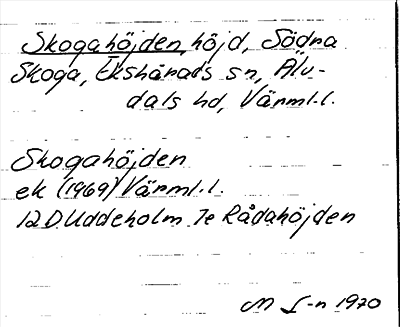 Skogahöjden, höjd, Södra
Skoga, Ekshärads sn, Älv-
dals hd, Värml.l.
Skogahöjden
ek (1969) Värml.l.
12D Uddeholm 7e Rådahöjden
M 1970